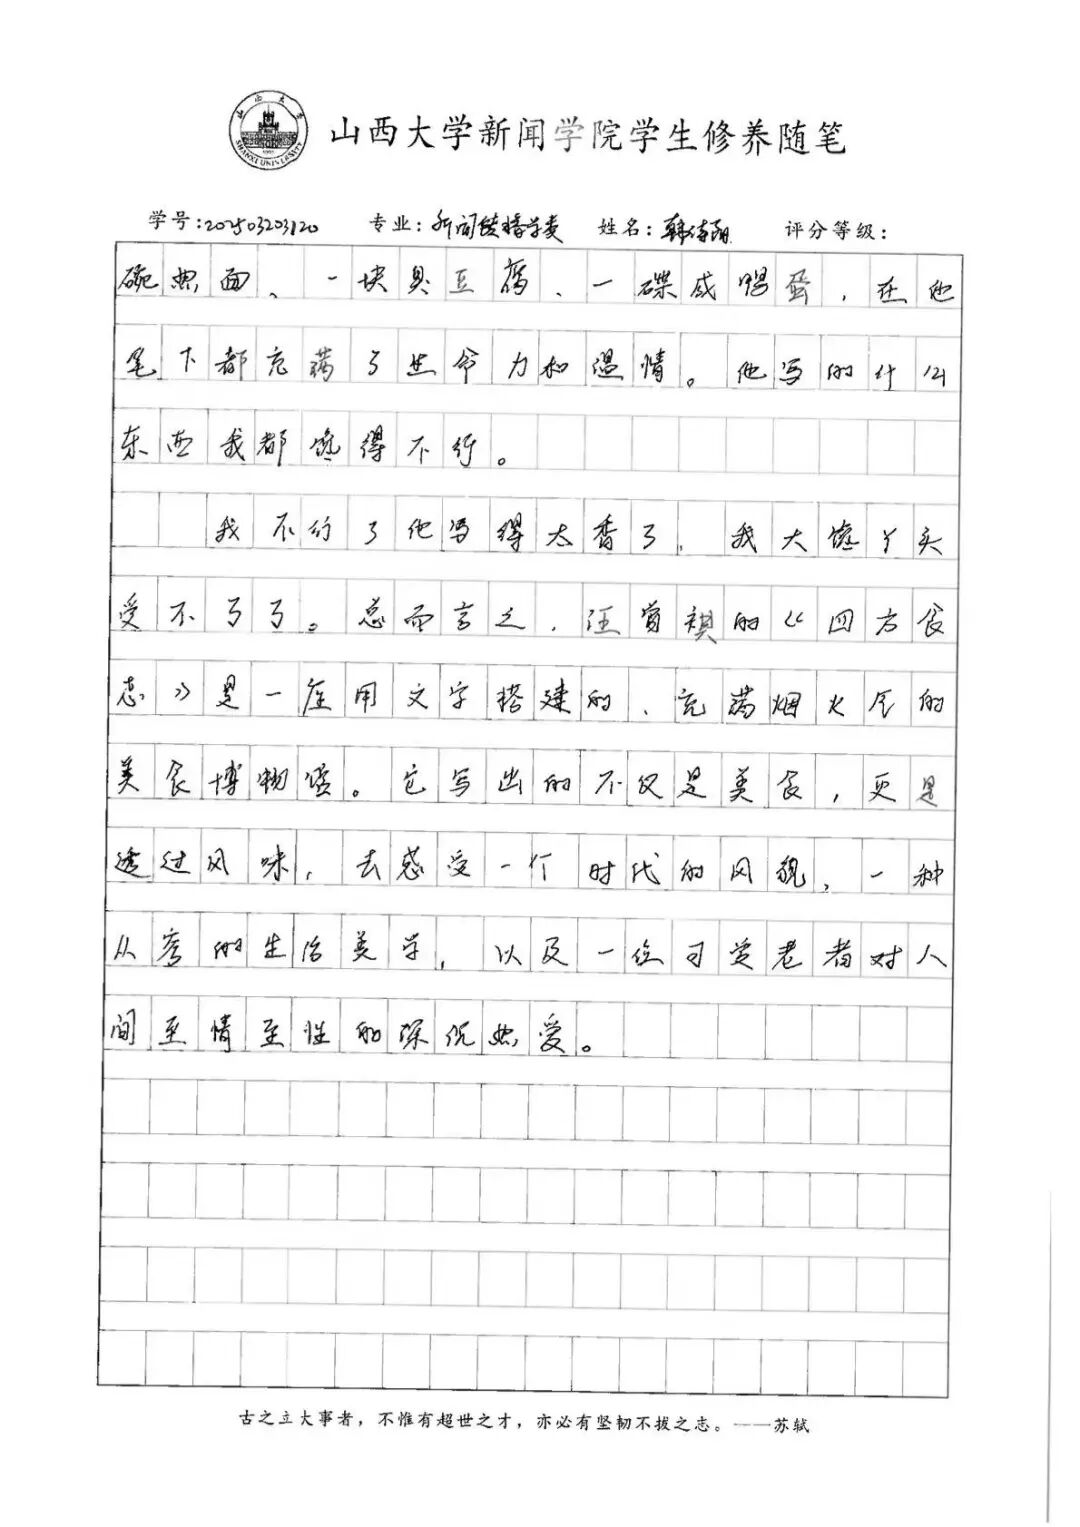 山西大学
SHANXI UNIVERSITY
山西大学新闻学院学生修养随笔
学号:202503203120 专业:新闻传播学类 姓名:韩 评分等级:
碗热面、一块臭豆腐、一碟咸鸭蛋，在他
笔下都充满了生命力和温情。他写的什么
东西我都馋得不行。
我不行了他写得太香了，我大馋丫头
受不了了。总而言之，汪曾祺的《四方食
志》是一座用文字搭建的、充满烟火食的
美食博物馆。它写出的不仅是美食，更是
透过风味，去感受一个时代的风貌，一种
从容的生活美学，以及一位可爱老者对人
间至情至性的深沉热爱。
古之立大事者，不惟有超世之才，亦必有坚韧不拔之志。——苏轼